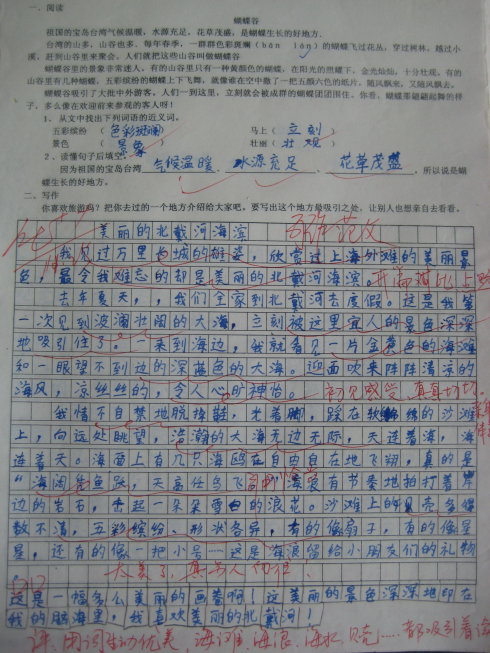 一、阅读
蝴蝶谷
祖国的宝岛台湾气候温暖，水源充足，花草茂盛，是蝴蝶生长的好地方。
台湾的山多，山谷也多。每年春季，一群群色彩斑斓（bān lán）的蝴蝶飞过花丛，穿过树林，越过小
溪，赶到山谷里来聚会。人们就把这些山谷叫做蝴蝶谷
蝴蝶谷里的景象非常迷人。有的山谷里只有一种黄颜色的蝴蝶，在阳光的照耀下，金光灿灿，十分壮观。有的
山谷里有几种蝴蝶，五彩缤纷的蝴蝶上下飞舞，就像谁在空中撒了一把五颜六色的纸片，随风飘来，又随风飘去。
蝴蝶谷吸引了大批中外游客。人们一到这里，立刻就会被成群的蝴蝶团团围住。你看，蝴蝶那翩翩起舞的样
子，多么像在欢迎前来参观的客人呀！
1、从文中找出下列词语的近义词。
五彩缤纷（色彩斑斓） 马上（立刻）
景色（景象） 壮丽（壮观）
2、读懂句子后填空
因为祖国的宝岛台湾气候温暖、水源充足、花草茂盛，所以说是蝴
蝶生长的好地方。
二、写作
你喜欢旅游吗？把你去过的一个地方介绍给大家吧。要写出这个地方最吸引之处，让别人也想亲自去看看。
美丽的北戴河海滨
我见过万里长城的雄姿，欣赏过上海外滩的美丽景
色，最令我难忘的却是美丽的北戴河海滨。
去年夏天，，我们全家到北戴河去度假。这是我第
一次见到波澜壮阔的大海，立刻被这里宜人的景色深深
地吸引住了。一来到海边，我就看见一片金黄色的海滩
和一眼望不到边的深蓝色的大海。迎面吹来阵阵清凉的
海风，凉丝丝的，令人心旷神怡。初见感受，真真切切。
我情不自禁地脱掉鞋，光着脚，踩在软绵绵的沙滩
上，向远处眺望，浩瀚的大海无边无际，天连着海，海
连着天。海面上有几只海鸥在自由自在地飞翔，真的是
“海阔凭鱼跃，天高任鸟飞
有节奏地拍打着岸
边的岩石，击起一朵朵雪白的浪花。沙滩上的贝壳多得
数不清，五彩缤纷、形状各异，有的像扇子，有的像星
星，还有的像一把小号……这是海浪留给小朋友们的礼物
太美了，真令人向往！
这是一幅多么美丽的画卷啊！这美丽的景色深深地印在
我的脑海里，我喜欢美丽的北戴河！
评：用词生动优美，海滩、海浪、海水、贝壳……都吸引着